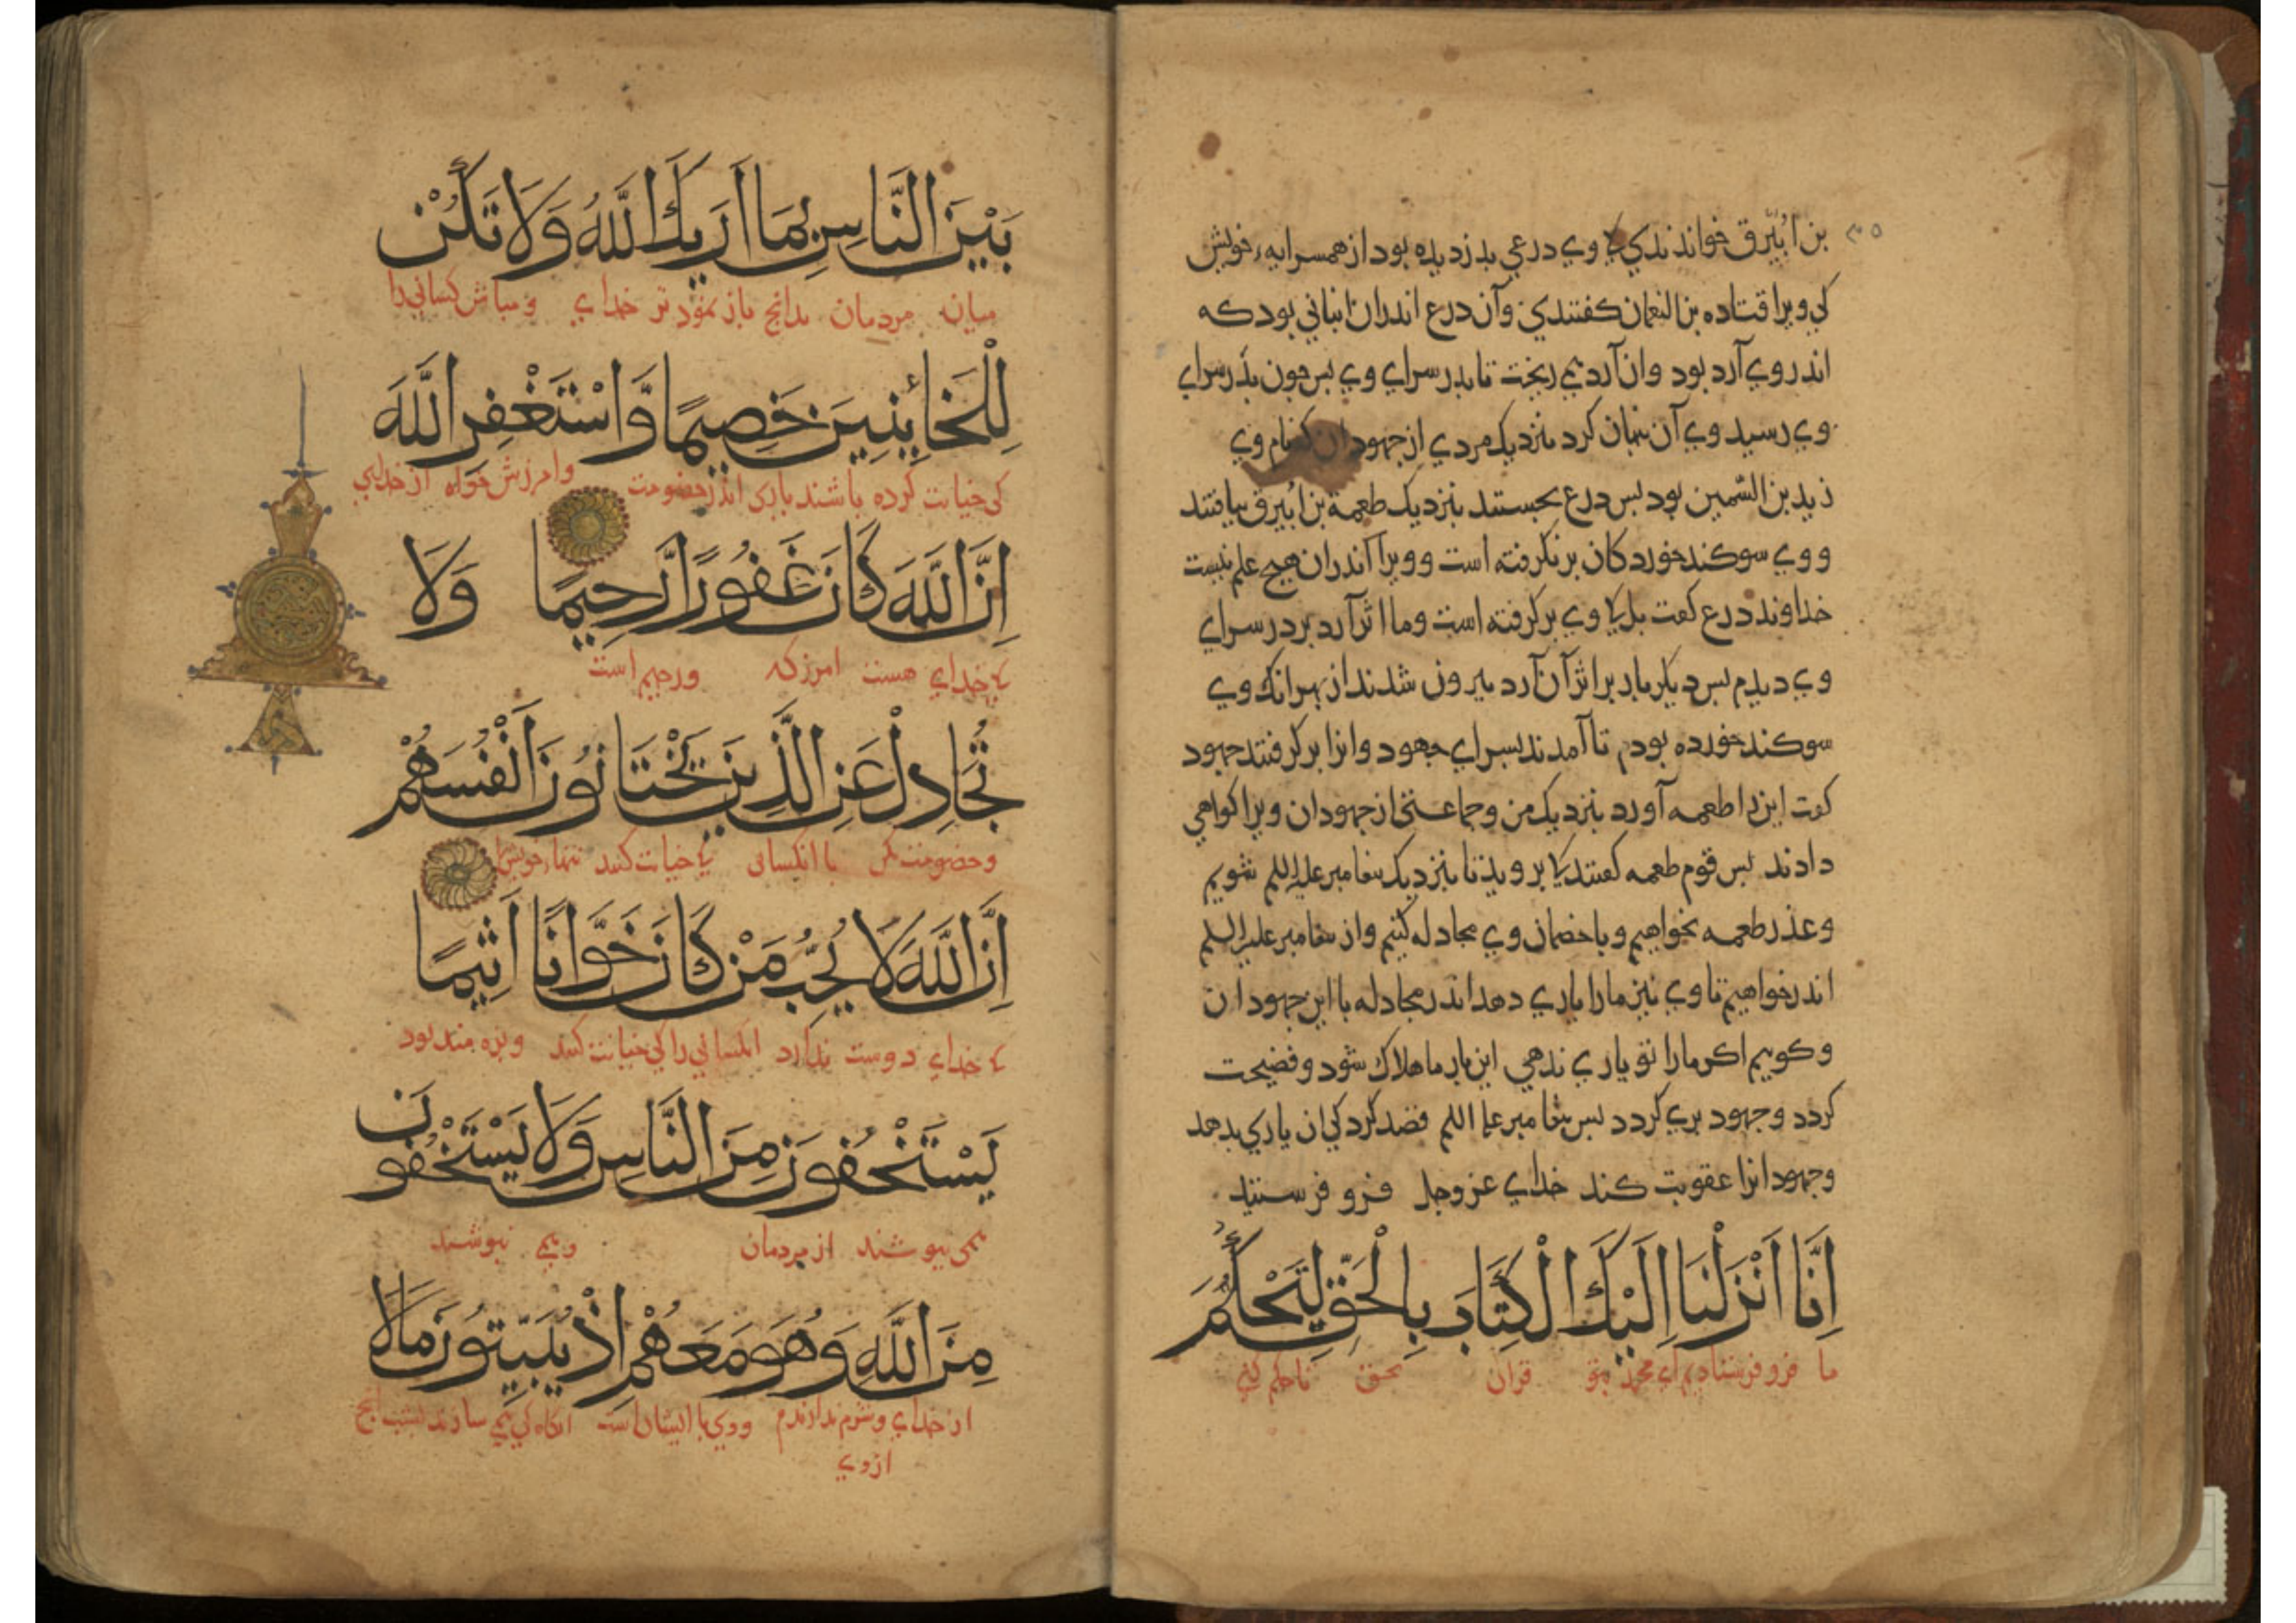 بن ابيرق خواندندي كي وي درعي بدزديده بود از همسرايه خويش
كي ويرا قتاده بن النعمان كفتندي وآن درع اندران انباني بود كه
اندروي آرد بود وان آرد همي ريخت تا بدر سراي وي بس جون بدر سراي
وي رسيد وي آن بنهان كرد بنزديك مردي از جهودان نام وي
زيد بن السمين بود بس درع بجستند بنزديك طعمة بن ابيرق نيافتند
و وي سوكند خورد كان بر نكرفته است و ويرا اندران هيج علم نيست
خداوند درع كفت بلي كي وي بر كرفته است وما اثر آرد بر در سراي
وي ديديم بس ديكر بار بر اثر آن آرد بيرون شدند از بهر انك وي
سوكند خورده بود تا آمدند بسراي جهود وانرا بر كرفتند جهود
كفت اين را طعمه آورد بنزديك من وجماعتي از جهودان ويرا كواهي
دادند بس قوم طعمه كفتند كي برويد تا بنزديك بيغامبر عليه السلم شويم
وعذر طعمه بخواهيم وبا خصمان وي مجادله كنيم واز بيغامبر عليه السلم
اندر خواهيم تا وي نيز ما را ياري دهد اندر مجادله با اين جهودان
وكوييم اكر ما را تو ياري ندهي اين يار ما هلاك شود وفضيحت
كردد وجهود بري كردد بس بيغامبر عليه السلم قصد كرد كي ان ياري بدهد
وجهودانرا عقوبت كند خداي عز وجل فرو فرستيد
اِنَّا اَنْزَلْنَا اِلَيْكَ الْكِتَابَ بِالْحَقِّ لِتَحْكُمَ
ما فرو فرستاديم اي محمد بتو قران بحق تا حكم كني
بَيْنَ النَّاسِ بِمَا اَرٰيكَ اللّٰهُ وَلَا تَكُنْ
ميان مردمان بدانج باز نمود تر خداي ومباش كساني را
لِلْخَائِنِينَ خَصِيمًا وَّاسْتَغْفِرِ اللّٰهَ
كي خيانت كرده باشند ياري اندر خصومت وامرزش خواه از خداي
اِنَّ اللّٰهَ كَانَ غَفُورًا رَّحِيمًا وَلَا
كي خداي هست امرزكار ورحيم است
تُجَادِلْ عَنِ الَّذِينَ يَخْتَانُونَ اَنْفُسَهُمْ
وخصومت مكن با انكساني كي خيانت كنند تنهاء خويش را
اِنَّ اللّٰهَ لَا يُحِبُّ مَنْ كَانَ خَوَّانًا اَثِيمًا
كي خداي دوست ندارد انكساني را كي خيانت كنند وبزه مند بود
يَسْتَخْفُونَ مِنَ النَّاسِ وَلَا يَسْتَخْفُونَ
همي ببوشند از مردمان وهمي نبوشند
مِنَ اللّٰهِ وَهُوَ مَعَهُمْ اِذْ يُبَيِّتُونَ مَا لَا
از خداي وشرم ندارند ووي با ايشان است انكاه كي همي سازند بشب انج
از وي